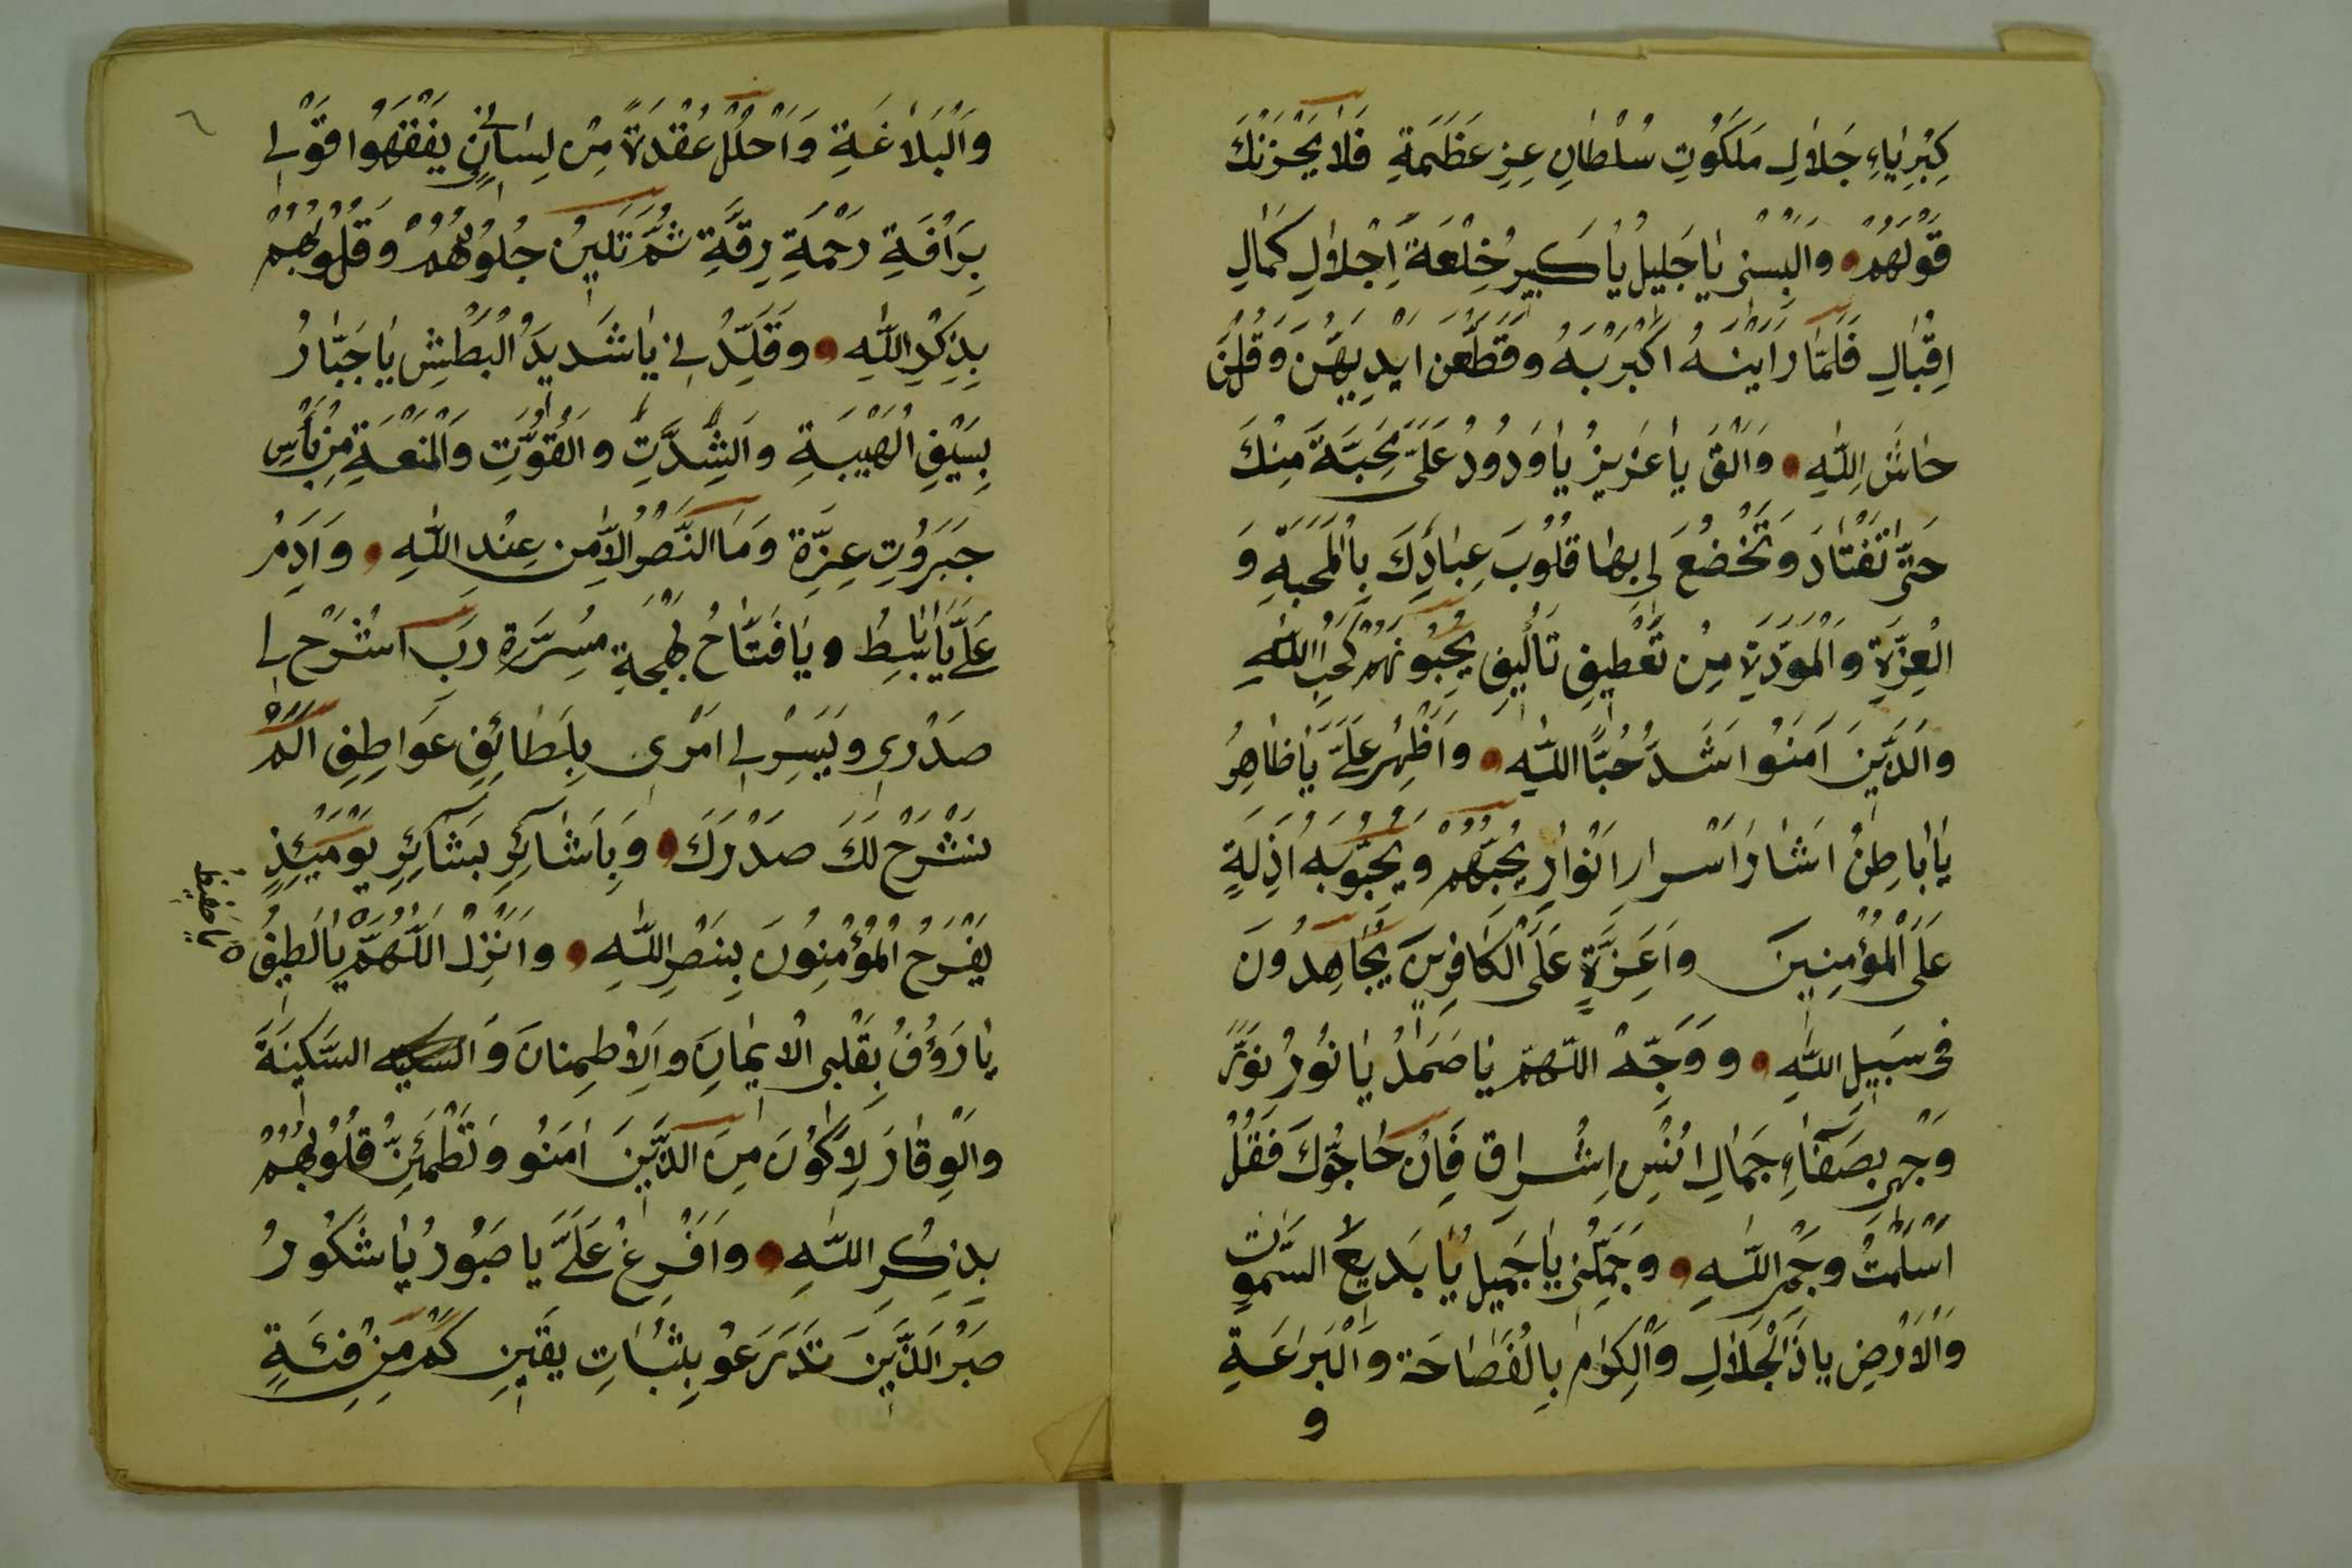 كِبْرِيَاءِ جَلَالِ مَلَكُوتِ سُلْطَانِ عِزِ عَظَمَةِ فَلَا يَحْزُنْكَ
قَوْلُهُمْ وَالْبِسْنِى يَا جَلِيلُ يَا كَبِيرُ خِلْعَةَ اِجْلَالِ كَمَالِ
اِقْبَالِ فَلَمَّا رَاَيْنَهُ اَكْبَرْنَهُ وَقَطَّعْنَ اَيْدِيَهُنَّ وَقُلْنَ
حَاشَ لِلّٰهِ وَاَلْقِ يَا عَزِيزُ يَا وَدُودُ عَلَىَّ مَحَبَّةً مِنْكَ
حَتّٰى تَنْقَادَ وَتَخْضَعَ لِى بِهَا قُلُوبَ عِبَادِكَ بِالْمَحَبَّةِ وَ
الْعِزَّةِ وَالْمَوَدَّةِ مِنْ تَعْطِيفِ تَأْلِيفِ يُحِبُّونَهُمْ كَحُبِّ اللّٰهِ
وَالَّذِينَ اٰمَنُوا اَشَدُّ حُبًّا لِلّٰهِ وَاَظْهِرْ عَلَىَّ يَا ظَاهِرُ
يَا بَاطِنُ اٰثَارَ اَسْرَارِ اَنْوَارِ يُحِبُّهُمْ وَيُحِبُّونَهُ اَذِلَّةٍ
عَلَى الْمُؤْمِنِينَ وَاَعِزَّةٍ عَلَى الْكَافِرِينَ يُجَاهِدُونَ
فِى سَبِيلِ اللّٰهِ وَوَجِّهْ اللّٰهُمَّ يَا صَمَدُ يَا نُورُ نَوِّرْ
وَجْهِى بِصَفَاءِ جَمَالِ اُنْسِ اِشْرَاقِ فَاِنْ حَاجُّوكَ فَقُلْ
اَسْلَمْتُ وَجْهِىَ لِلّٰهِ وَجَمِّلْنِى يَا جَمِيلُ يَا بَدِيعَ السَّمٰوَاتِ
وَالْاَرْضِ يَا ذَا الْجَلَالِ وَالْاِكْرَامِ بِالْفَصَاحَةِ وَالْبَرَاعَةِ
و
٦
وَالْبَلَاغَةِ وَاحْلُلْ عُقْدَةً مِنْ لِسَانِى يَفْقَهُوا قَوْلِى
بِرَاْفَةِ رَحْمَةِ رِقَّةِ ثُمَّ تَلِينُ جُلُودُهُمْ وَقُلُوبُهُمْ
بِذِكْرِ اللّٰهِ وَقَلِّدْنِى يَا شَدِيدَ الْبَطْشِ يَا جَبَّارُ
بِسَيْفِ الْهَيْبَةِ وَالشِّدَّتِ وَالْقُوَّتِ وَالْمَنَعَةِ مِنْ بَأْسِ
جَبَرُوتِ عِزَّةِ وَمَا النَّصْرُ اِلَّا مِنْ عِنْدِ اللّٰهِ وَاَدِمْ
عَلَىَّ يَا بَاسِطُ وَيَا فَتَّاحُ بَهْجَةِ مَسَرَّةِ رَبِّ اشْرَحْ لِى
صَدْرِى وَيَسِّرْ لِى اَمْرِى بِلَطَائِفِ عَوَاطِفِ اَلَمْ
نَشْرَحْ لَكَ صَدْرَكَ وَبِاَشَائِرِ بَشَائِرِ يَوْمَئِذٍ
يَفْرَحُ الْمُؤْمِنُونَ بِنَصْرِ اللّٰهِ وَاَنْزِلْ اللّٰهُمَّ يَا لَطِيفُ
يَا حَفِيظُ
يَا رَؤُفُ بِقَلْبِى الْاِيمَانَ وَالْاِطْمِنَانَ وَالسكينه السَّكِينَةَ
وَالْوِقَارَ لِاَكُونَ مِنَ الَّذِينَ اٰمَنُو وَتَطْمَئِنُّ قُلُوبُهُمْ
بِذِكْرِ اللّٰهِ وَاَفْرِغْ عَلَىَّ يَا صَبُورُ يَا شَكُورُ
صَبْرَ الَّذِينَ تَدَرَّعُو بِثَبَاتِ يَقِينِ كَمْ مِنْ فِئَةٍ